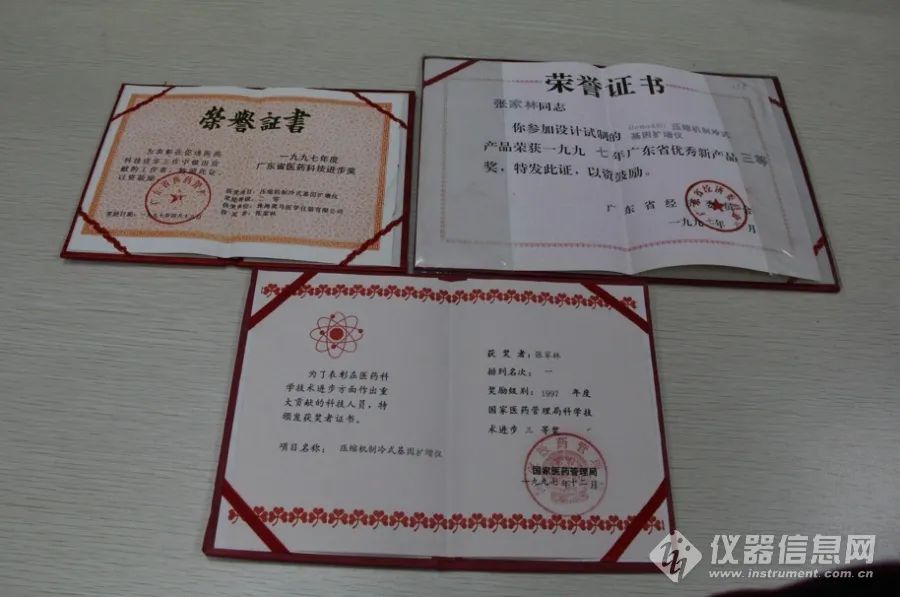 荣誉证书
为表彰在促进医药
科技进步工作中做出贡
献的工作者,特颁此证,
以资鼓励。
一九九七年度
广东省医药科技进步奖
获奖项目:压缩机制冷式基因扩增仪
奖励等级:二等
获奖单位:珠海黑马医学仪器有限公司
获奖者:张家林
荣誉证书
张家林同志
你参加设计试制的 压缩机制冷式
基因扩增仪
产品荣获一九九七年广东省优秀新产品三等
奖,特发此证,以资鼓励。
广东省经济委员会
一九九七年 月
为了表彰在医药科
学技术进步方面作出重
大贡献的科技人员,特
颁发获奖者证书。
项目名称: 压缩机制冷式基因扩增仪
获奖者:张家林
排列名次:一
奖励级别:1997 年度
国家医药管理局科学技
术进步 三 等奖
国家医药管理局
一九九七年十二月
仪器信息网
www.instrument.com.cn